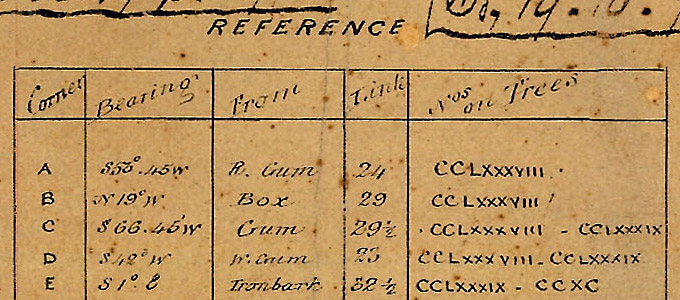 REFERENCE
Corner Bearing From Link Nos on Trees
A S50°.45W R. Gum 24 CCLXXXVIII
B N19°W Box 29 CCLXXXVIII
C S66.45W Gum 29½ CCLXXXVIII - CCLXXXIX
D S42°W W. Gum 23 CCLXXXVIII - CCLXXXIX
E S1°.E Ironbark 32½ CCLXXXIX - CCXC